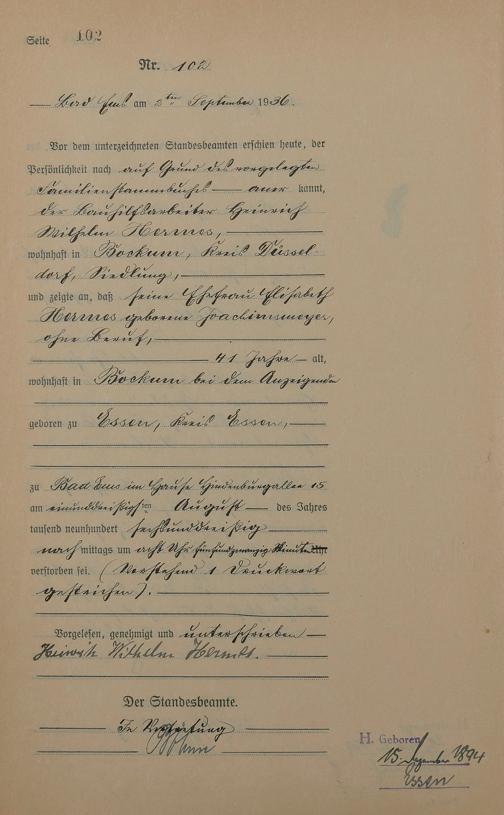 Seite 102
Nr. 102
Bad Ems am 2ten September 1936.
Vor dem unterzeichneten Standesbeamten erschien heute, der
Persönlichkeit nach auf Grund des vorgelegten
Familienstammbuches — aner kannt,
der Bauhilfsarbeiter Heinrich
Wilhelm Hermes,
wohnhaft in Bockum, Kreis Düssel-
dorf, Siedlung,
und zeigte an, daß seine Ehefrau Elisabeth
Hermes geborene Joachimsmeyer,
ohne Beruf,
41 Jahre alt,
wohnhaft in Bockum bei dem Anzeigende
geboren zu Essen, Kreis Essen,
zu Bad Ems im Hause Hindenburgallee 15
am einunddreißigsten August — des Jahres
tausend neunhundert sechsunddreißig
nach mittags um acht Uhr fünfundzwanzig Minuten
verstorben sei. (Vorstehend 1 Druckwort
gestrichen).
Vorgelesen, genehmigt und unterschrieben
Heinrich Wilhelm Hermes.
Der Standesbeamte.
In Vertretung
H. Geboren
15. Dezember 1894
Essen